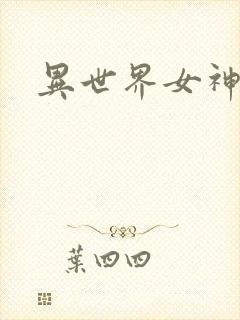 異世界女神
葉四四